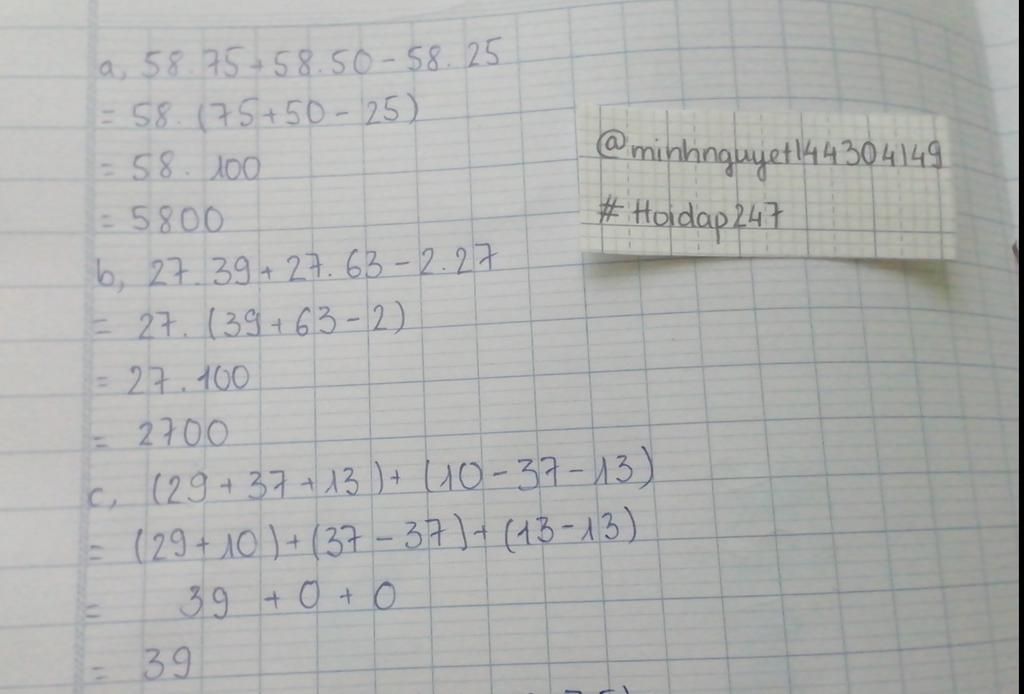 a, 58.75+58.50-58.25
= 58.(75+50-25)
= 58.100
= 5800
b, 27.39+27.63-2.27
= 27.(39+63-2)
= 27.100
= 2700
c, (29+37+13)+(10-37-13)
= (29+10)+(37-37)+(13-13)
= 39 + 0 + 0
= 39
@minhnguyet144304149
# Hoidap247